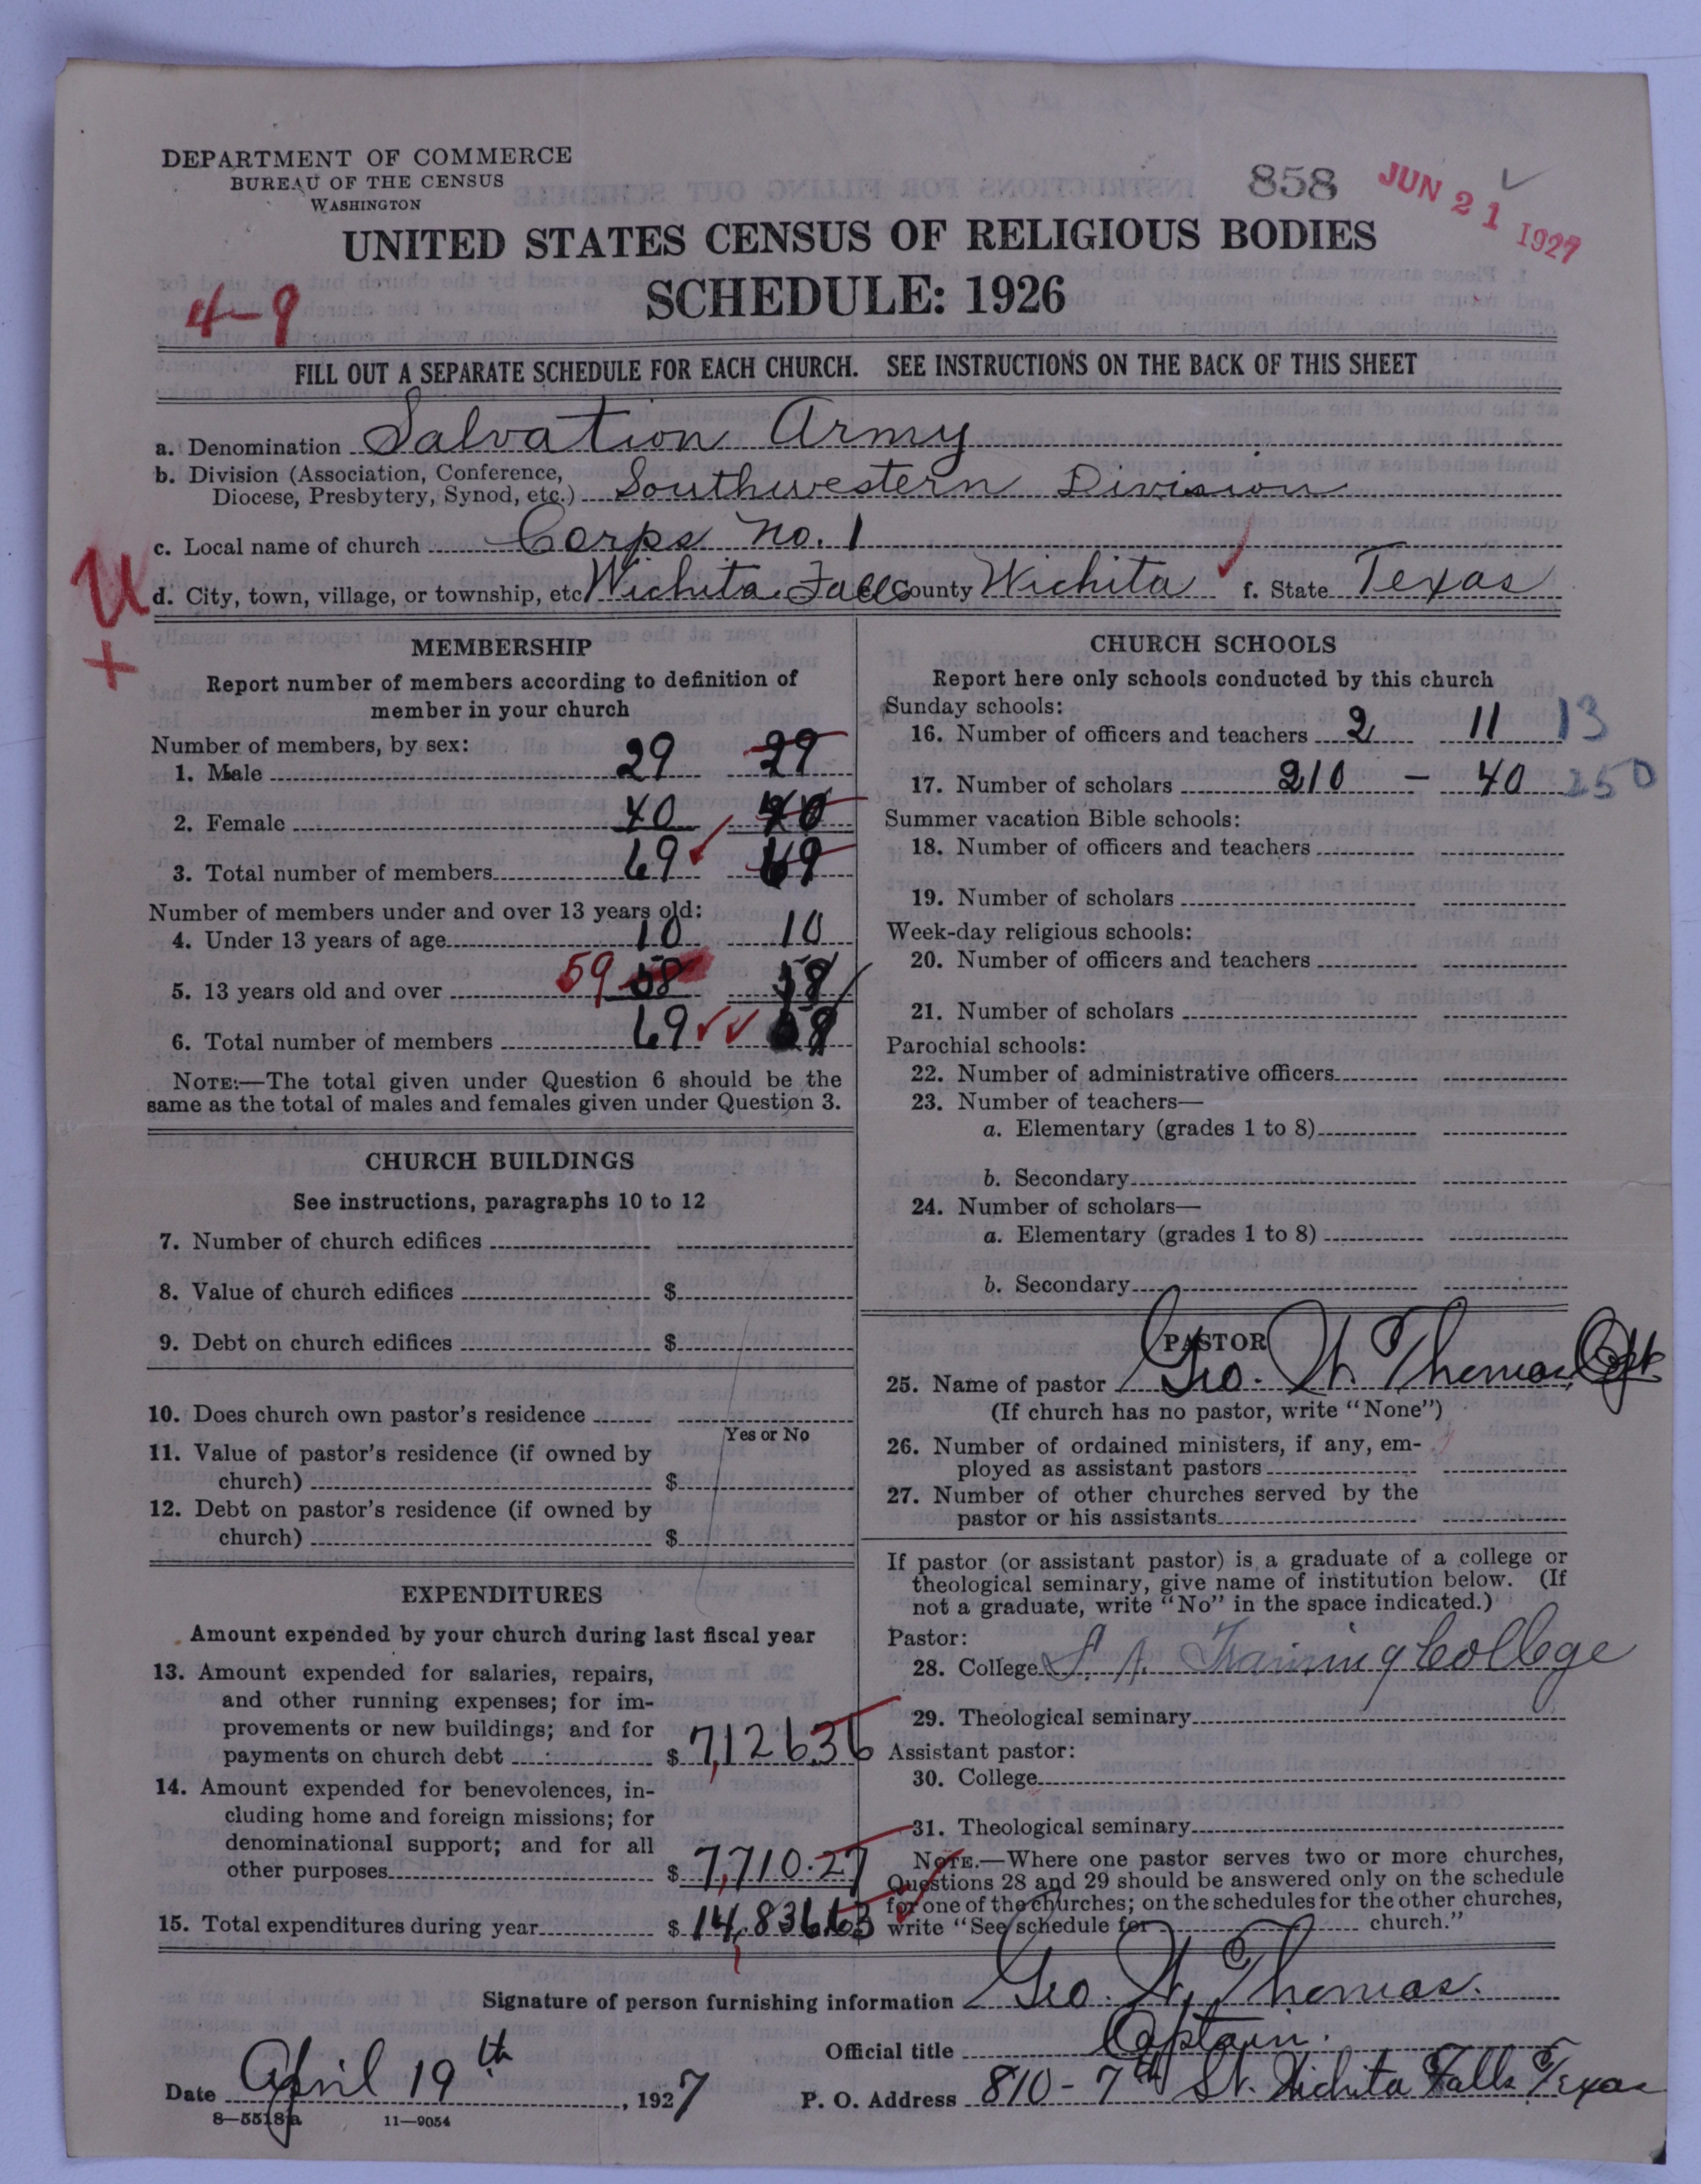 DEPARTMENT OF COMMERCE
BUREAU OF THE CENSUS
WASHINGTON
858
JUN 21 1927
UNITED STATES CENSUS OF RELIGIOUS BODIES
SCHEDULE: 1926
4-9
FILL OUT A SEPARATE SCHEDULE FOR EACH CHURCH. SEE INSTRUCTIONS ON THE BACK OF THIS SHEET
a. Denomination Salvation Army
b. Division (Association, Conference,
Diocese, Presbytery, Synod, etc.) Southwestern Division
c. Local name of church Corps No. 1
U
+
d. City, town, village, or township, etc Wichita Falls County Wichita f. State Texas
MEMBERSHIP
Report number of members according to definition of
member in your church
Number of members, by sex:
1. Male 29 29
2. Female 40 40
3. Total number of members 69 69
Number of members under and over 13 years old:
4. Under 13 years of age 10 10
5. 13 years old and over 59 58 58
6. Total number of members 69
NOTE:—The total given under Question 6 should be the
same as the total of males and females given under Question 3.
CHURCH BUILDINGS
See instructions, paragraphs 10 to 12
7. Number of church edifices
8. Value of church edifices $
9. Debt on church edifices $
10. Does church own pastor's residence
Yes or No
11. Value of pastor's residence (if owned by
church) $
12. Debt on pastor's residence (if owned by
church) $
EXPENDITURES
Amount expended by your church during last fiscal year
13. Amount expended for salaries, repairs,
and other running expenses; for im-
provements or new buildings; and for
payments on church debt $ 7,126.36
14. Amount expended for benevolences, in-
cluding home and foreign missions; for
denominational support; and for all
other purposes $ 7,710.27
15. Total expenditures during year $ 14,836.63
CHURCH SCHOOLS
Report here only schools conducted by this church
Sunday schools:
16. Number of officers and teachers 2 11 13
17. Number of scholars 210 - 40 250
Summer vacation Bible schools:
18. Number of officers and teachers
19. Number of scholars
Week-day religious schools:
20. Number of officers and teachers
21. Number of scholars
Parochial schools:
22. Number of administrative officers
23. Number of teachers—
a. Elementary (grades 1 to 8)
b. Secondary
24. Number of scholars—
a. Elementary (grades 1 to 8)
b. Secondary
PASTOR
25. Name of pastor Geo. W. Thomas, Capt.
(If church has no pastor, write "None")
26. Number of ordained ministers, if any, em-
ployed as assistant pastors
27. Number of other churches served by the
pastor or his assistants
If pastor (or assistant pastor) is a graduate of a college or
theological seminary, give name of institution below. (If
not a graduate, write "No" in the space indicated.)
Pastor:
28. College S. A. Training College
29. Theological seminary
Assistant pastor:
30. College
31. Theological seminary
NOTE.—Where one pastor serves two or more churches,
Questions 28 and 29 should be answered only on the schedule
for one of the churches; on the schedules for the other churches,
write "See schedule for church."
Signature of person furnishing information Geo. W. Thomas.
Official title Captain.
Date April 19th, 1927
P. O. Address 810 - 7th St. Wichita Falls Texas
8—5518a 11—9054